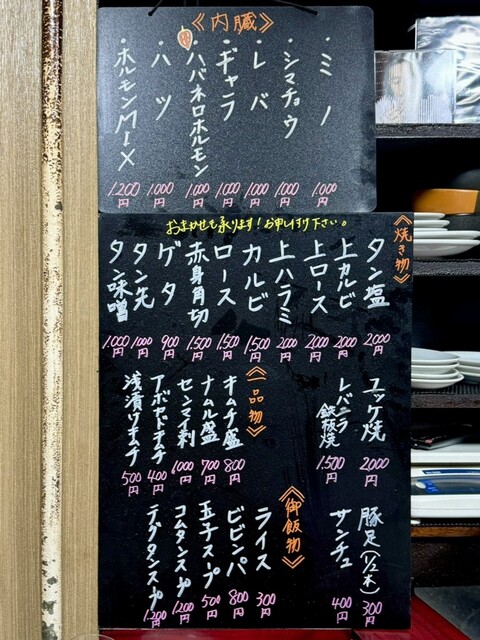 《内臓》
・ミノ 1,000円
・シマチョウ 1,000円
・レバ 1,000円
・ギャラ 1,000円
・ハバネロホルモン 1,000円
・ハツ 1,000円
・ホルモンMIX 1,200円
おまかせも承ります！お申し付け下さい。
《焼き物》
タン塩 2000円
上カルビ 2000円
上ロース 2000円
上ハラミ 2000円
カルビ 1,500円
ロース 1,500円
赤身角切 1,500円
ゲタ 900円
タン先 1000円
タン味噌 1,000円
ユッケ焼 2,000円
レバニラ鉄板焼 1,500円
豚足(1/2本) 300円
サンチュ 400円
《一品物》
キムチ盛 800円
ナムル盛 700円
センマイ刺 1000円
アボカドキムチ 400円
浅漬けキムチ 500円
《御飯物》
ライス 300円
ビビンバ 800円
玉子スープ 500円
コムタンスープ 1,200円
テグタンスープ 1,200円